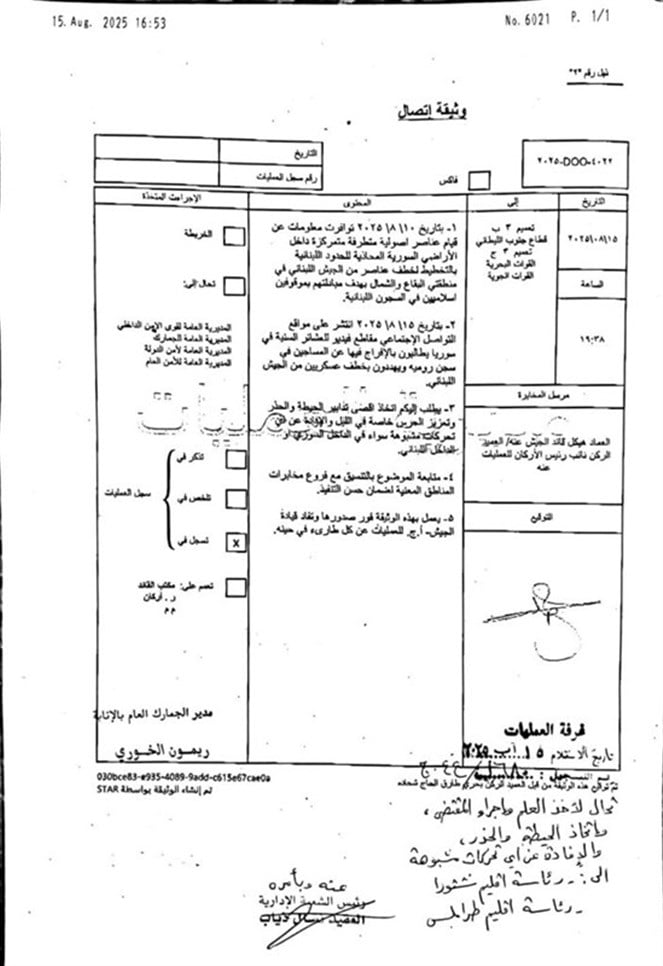 15. Aug. 2025 16:53
No. 6021 P. 1/1
ذيل رقم ٣٢٣
وثيقة إتصال
٢٠٢٥-DOO-٤٠٢٢
فاكس
التاريخ
رقم سجل العمليات
التاريخ
إلى
المحتوى
الإجراءات المتخذة
٢٠٢٥/٠٨/١٥
الساعة
١٩:٣٨
تعميم ٣ ب
قطاع جنوب الليطاني
تعميم ٣ ج
القوات البحرية
القوات الجوية
مرسل المخابرة
العماد هيكل قائد الجيش عنه/ العميد
الركن نائب رئيس الأركان للعمليات
عنه
التوقيع
١- بتاريخ ١٠\ ٨\ ٢٠٢٥ توافرت معلومات عن
قيام عناصر اصولية متطرفة متمركزة داخل
الأراضي السورية المحاذية للحدود اللبنانية
بالتخطيط لخطف عناصر من الجيش اللبناني في
منطقتي البقاع والشمال بهدف مبادلتهم بموقوفين
اسلاميين في السجون اللبنانية.
٢- بتاريخ ١٥\ ٨\ ٢٠٢٥ انتشر على مواقع
التواصل الإجتماعي مقاطع فيديو للعشائر السنية في
سوريا يطالبون بالإفراج فيها عن المساجين في
سجن روميه ويهددون بخطف عسكريين من الجيش
اللبناني.
٣- يطلب إليكم اتخاذ اقصى تدابير الحيطة والحذر
وتعزيز الحرس خاصة في الليل والإفادة عن اي
تحركات مشبوهة سواء في الداخل السوري او
الداخل اللبناني.
٤- متابعة الموضوع بالتنسيق مع فروع مخابرات
المناطق المعنية لضمان حسن التنفيذ.
٥- يعمل بهذه الوثيقة فور صدورها وتفاد قيادة
الجيش- أ.ج للعمليات عن كل طارىء في حينه.
الخريطة
تحال إلى:
المديرية العامة لقوى الامن الداخلي
المديرية العامة الجمارك
المديرية العامة لأمن الدولة
المديرية العامة للأمن العام
تذكر في
تلخص في
سجل العمليات
تسجل في
X
تعمم على: مكتب القائد
ر. أركان
م م
مدير الجمارك العام بالإنابة
ريمون الخوري
غرفة العمليات
تاريخ الاستلام ١٥ آب ٢٠٢٥
030bce83-e935-4089-9add-c615e67cae0a
تم إنشاء الوثيقة بواسطة STAR
تم توقيع هذه الوثيقة من قبل العميد الركن البحري طارق الحاج شحاده
تحال لأخذ العلم واجراء المقتضى،
واتخاذ الحيطة والحذر،
والإفادة عن اي تحركات مشبوهة
الى: - رئاسة اقليم شتورا
- رئاسة اقليم طرابلس
عنه وبأمره
رئيس الشعبة الإدارية
العقيد دياب